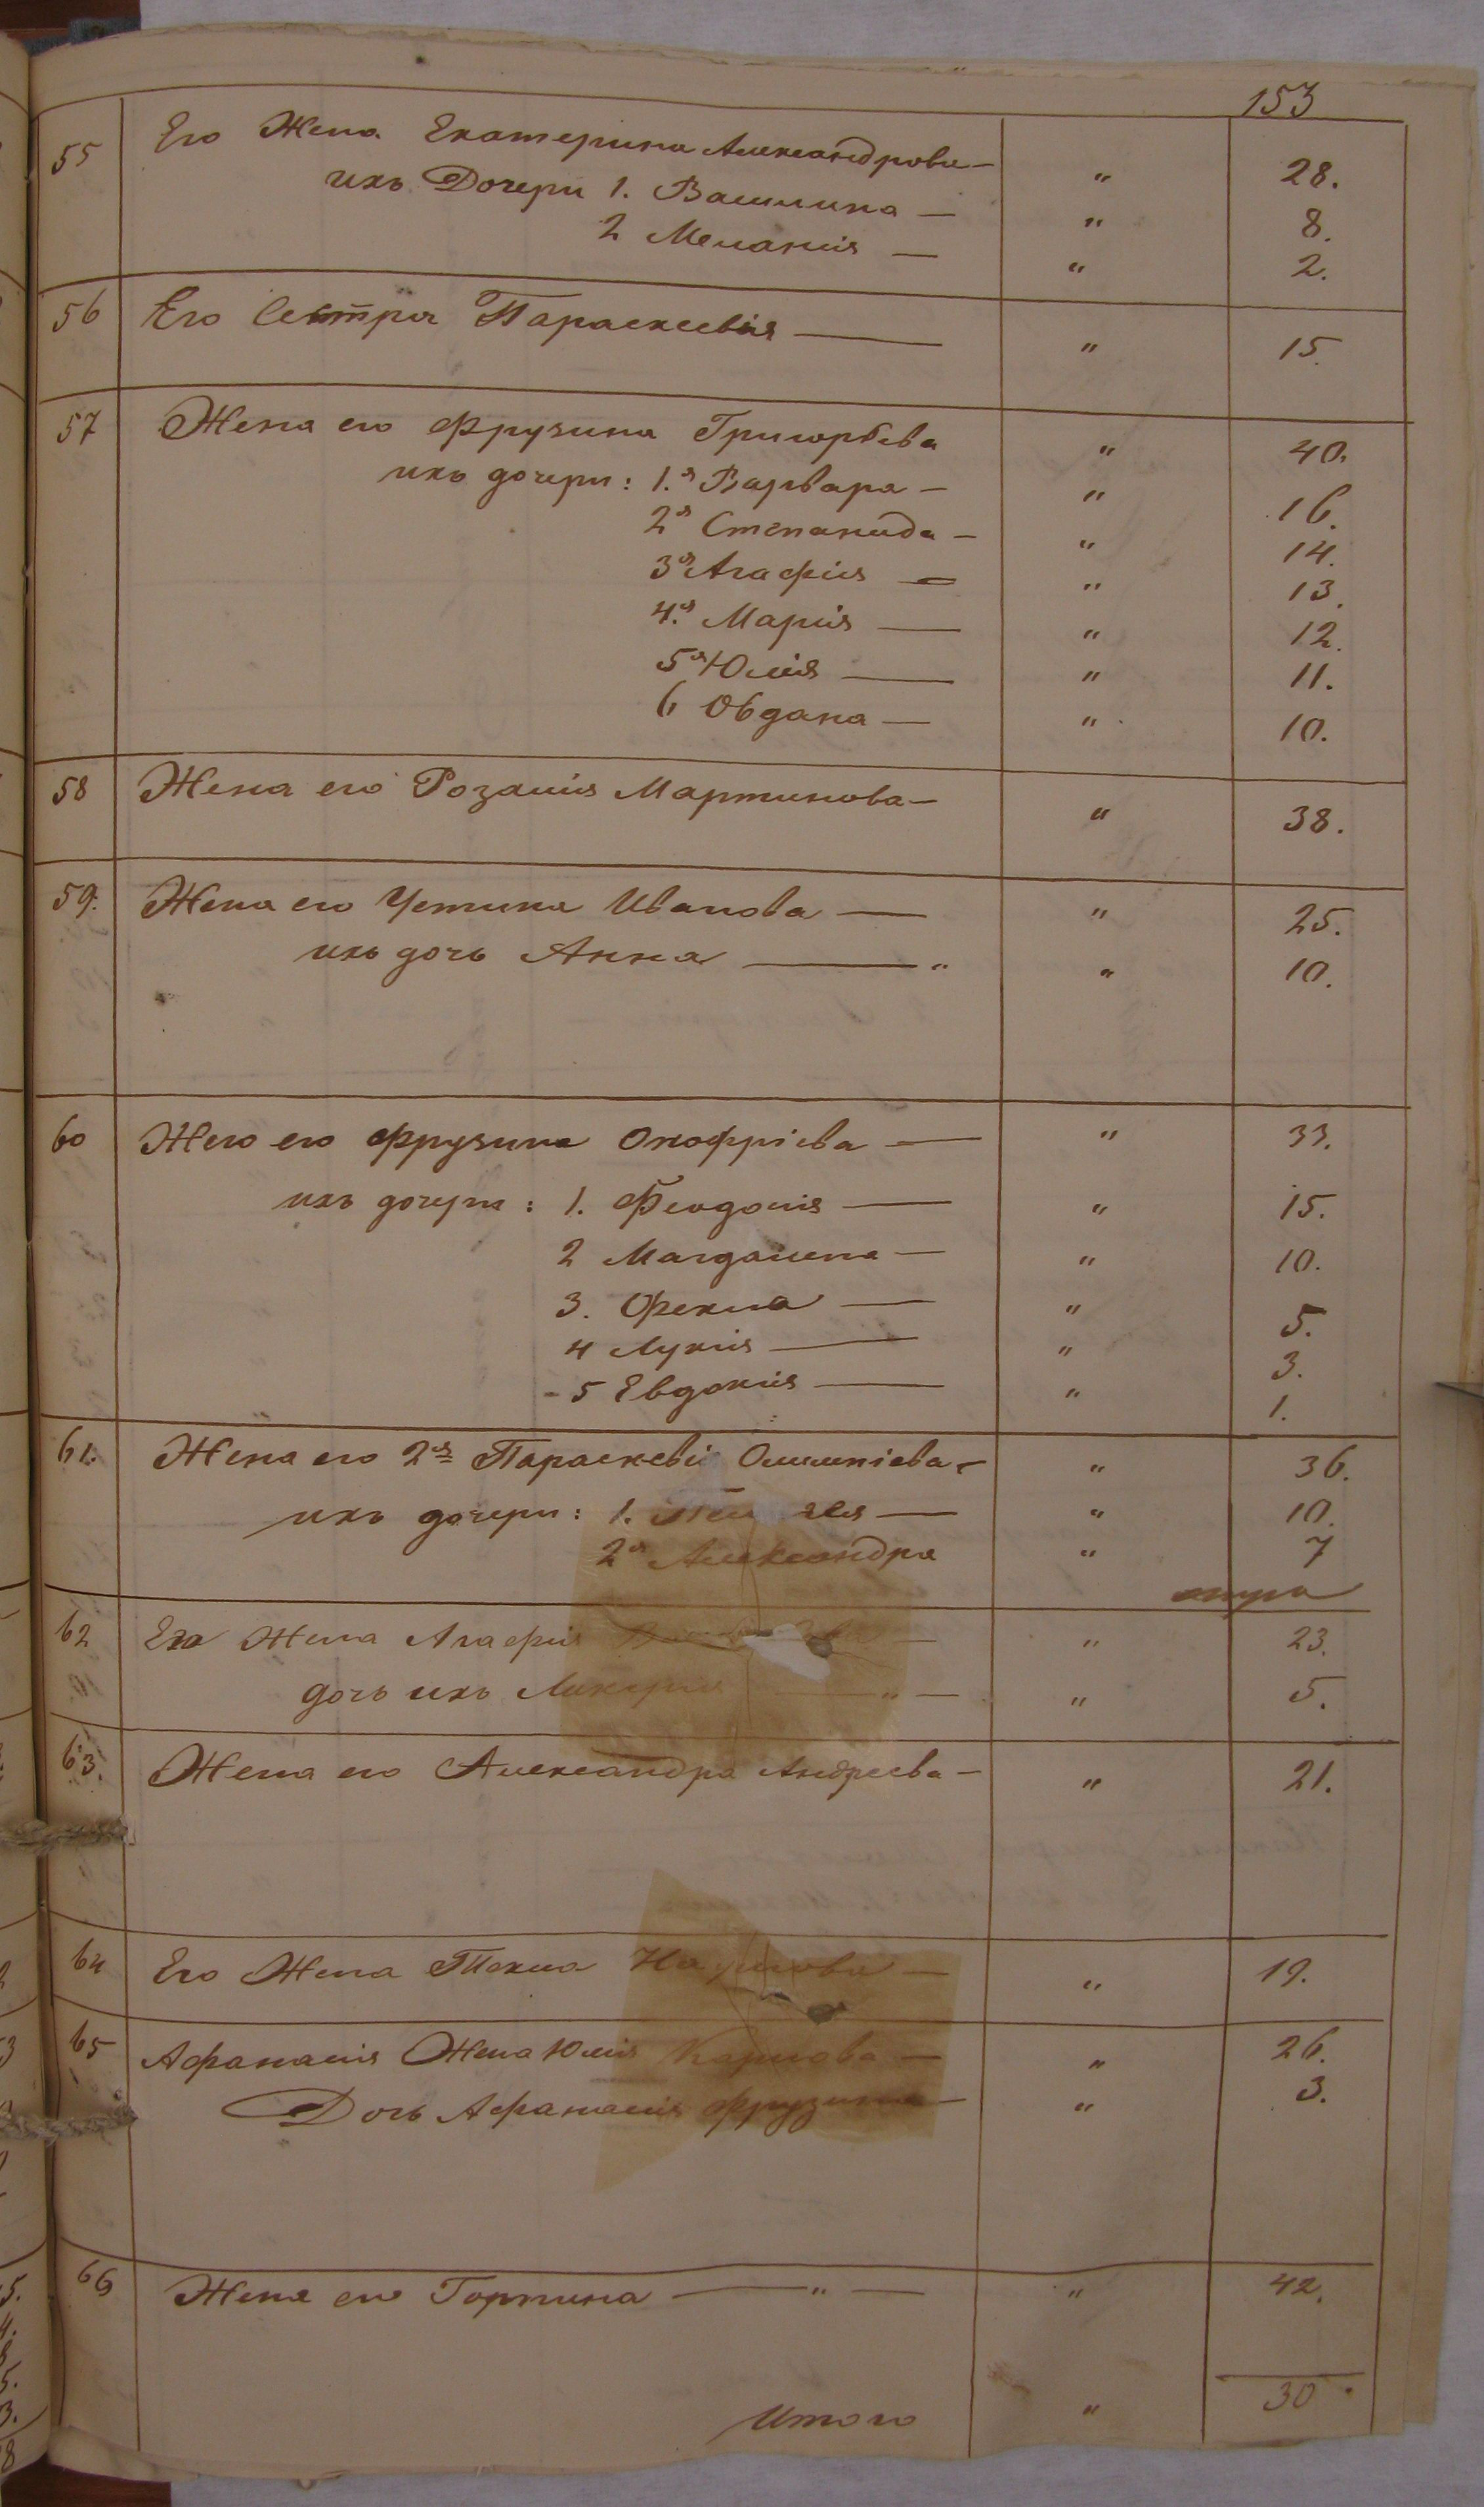 153
55 Его Жена Екатерина Александрова — " 28.
ихъ Дочери 1. Василина — " 8.
2 Меланія — " 2.
56 Его Сестра Параскевія — " 15.
57 Жена его Фрузина Григорьева " 40.
ихъ дочери: 1.я Варвара — " 16.
2я Степанида — " 14.
3я Агафія — " 13.
4.я Марія — " 12.
5я Юлія — " 11.
6 Овдана — " 10.
58 Жена его Розалія Мартинова — " 38.
59. Жена его Устина Иванова — " 25.
ихъ дочь Анна — " " 10.
60 Жего его Фрузина Онофріева — " 33.
ихъ дочери: 1. Феодосія — " 15.
2 Магдалена — " 10.
3. Фекла — " 5.
4 Лукія — " 3.
5 Евдокія — " 1.
61. Жена его 2я Параскевія — " 36.
ихъ дочери: 1. — " 10.
2я Александра " 7
62 Его Жена Агафія — " 23.
дочь ихъ Ликерія — " — " 5.
63. Жена его Александра Андреева — " 21.
64 Его Жена Текла Наумова — " 19.
65 Афанасія Жена Юлія Карпова — " 26.
Дочь Афанасія Фрузина — " 3.
66 Жена его Горпина — " — " 42.
Итого " 30.